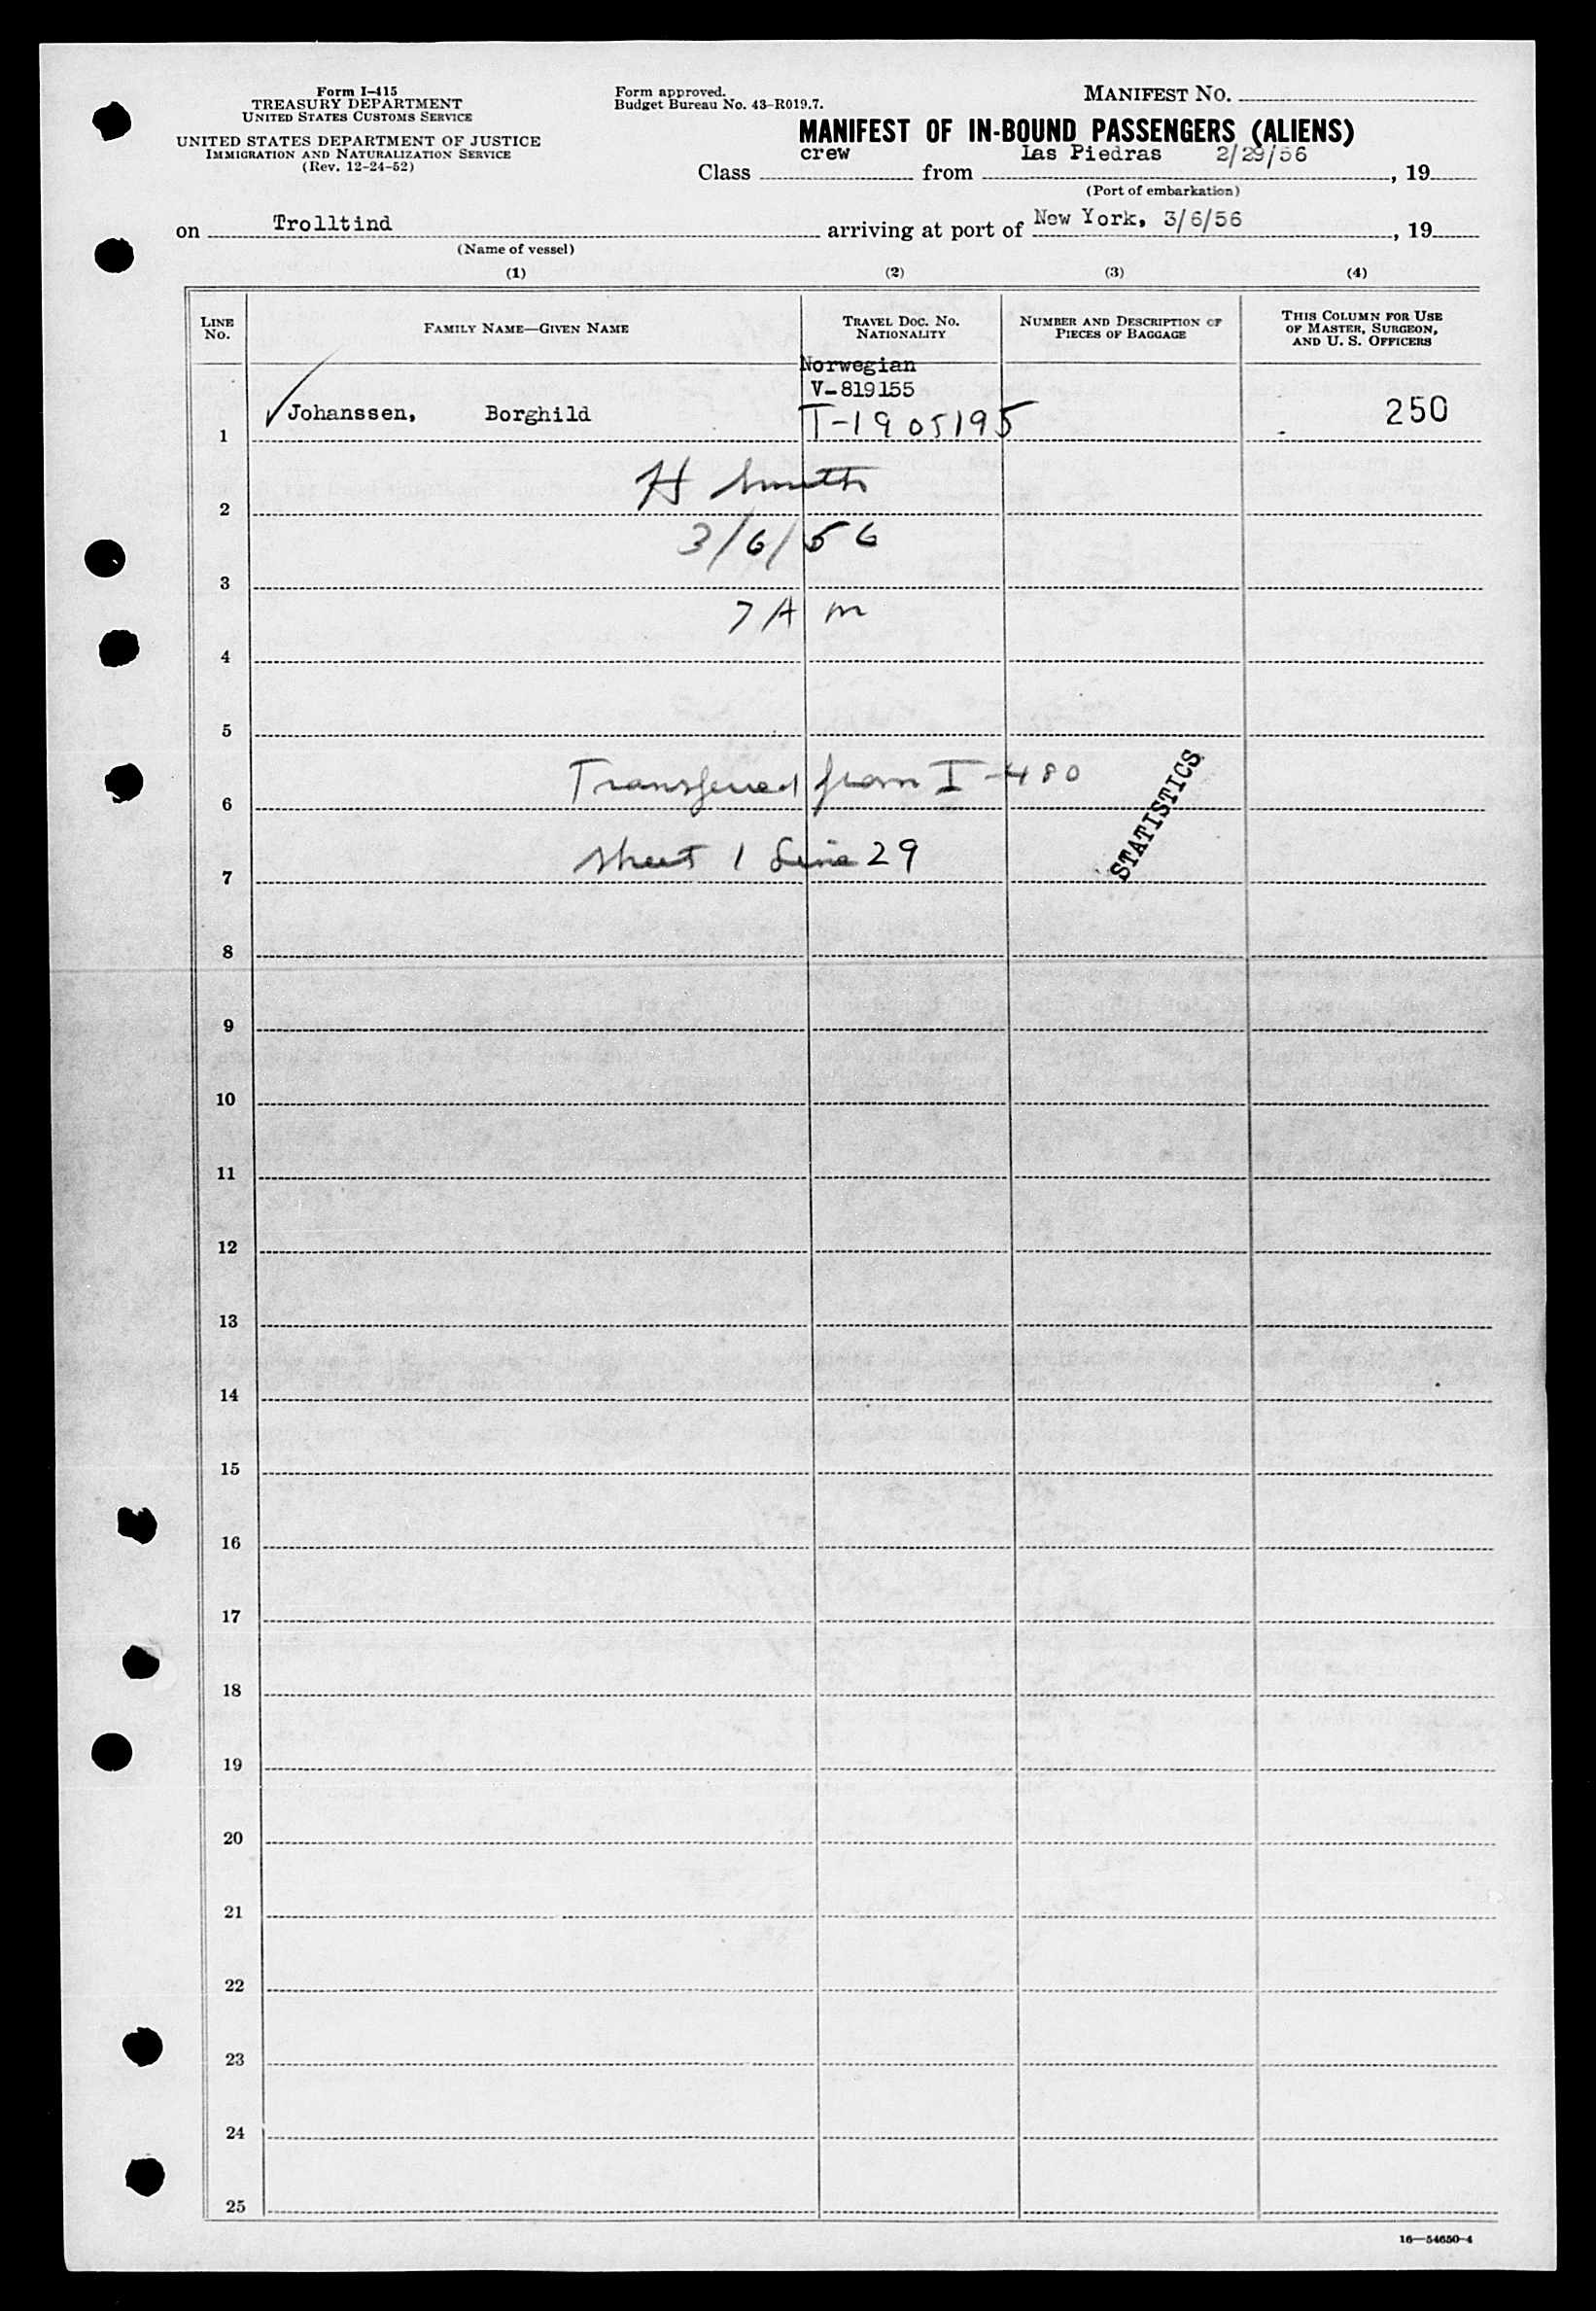 Form I-415
TREASURY DEPARTMENT
UNITED STATES CUSTOMS SERVICE
UNITED STATES DEPARTMENT OF JUSTICE
IMMIGRATION AND NATURALIZATION SERVICE
(Rev. 12-24-52)
Form approved.
Budget Bureau No. 43-R019.7.
MANIFEST NO.
MANIFEST OF IN-BOUND PASSENGERS (ALIENS)
Class crew from Las Piedras 2/29/56, 19
(Port of embarkation)
on Trolltind arriving at port of New York, 3/6/56, 19
(Name of vessel)
(1) (2) (3) (4)
LINE NO.
FAMILY NAME—GIVEN NAME
TRAVEL DOC. NO.
NATIONALITY
NUMBER AND DESCRIPTION OF
PIECES OF BAGGAGE
THIS COLUMN FOR USE
OF MASTER, SURGEON,
AND U. S. OFFICERS
Norwegian
V-819155
Johanssen, Borghild T-1905195 250
1
H Smith
2
3/6/56
3
7 A m
4
5
Transferred from I-480
6
STATISTICS
sheet 1 Line 29
7
8
9
10
11
12
13
14
15
16
17
18
19
20
21
22
23
24
25
16—54650-4